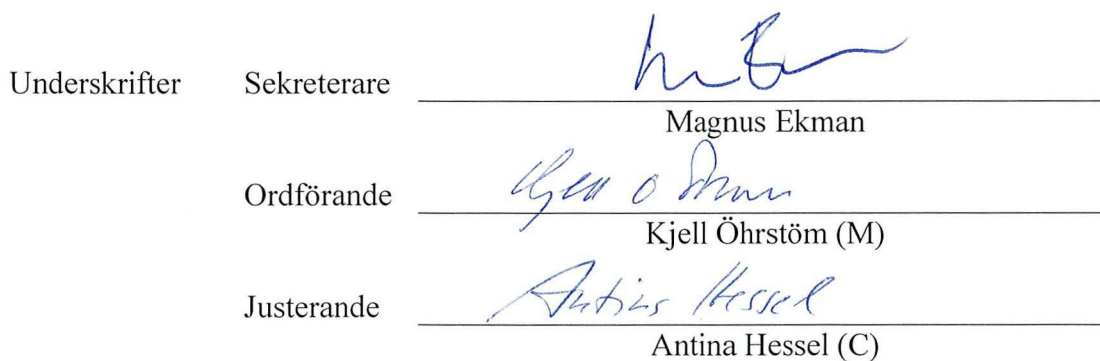 Underskrifter Sekreterare
Magnus Ekman
Ordförande
Kjell Öhrstöm (M)
Justerande Antina Hessel
Antina Hessel (C)